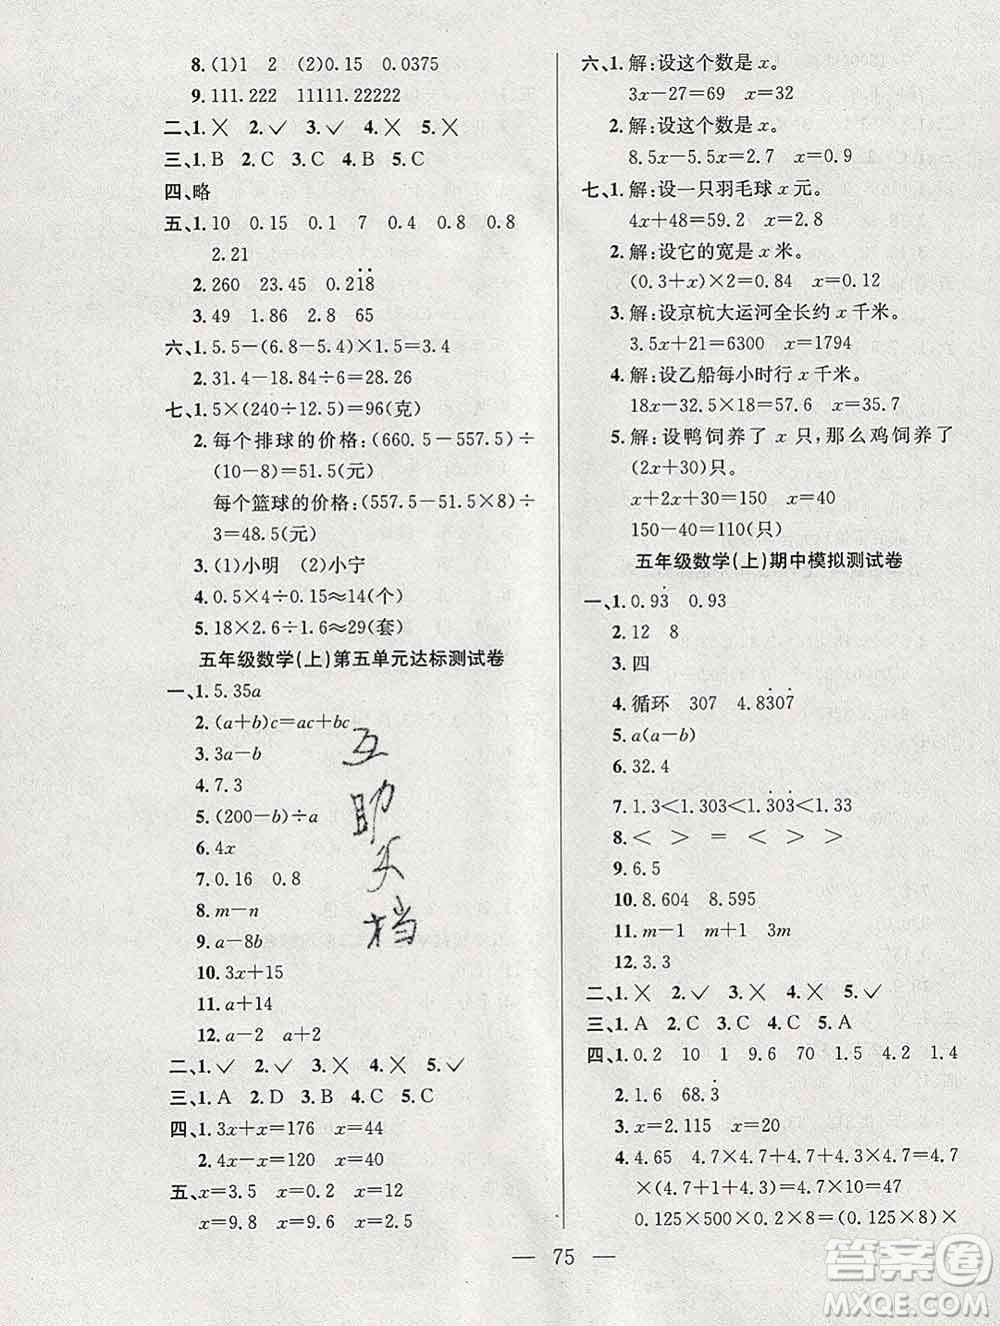 8. (1)1　2　(2)0.15　0.0375
9. 111.222　11111.22222
二、1. ╳　2. ✓　3. ✓　4. ╳　5. ╳
三、1. B　2. C　3. C　4. B　5. C
四、略
五、1. 10　0.15　0.1　7　0.4　0.8　0.8
2.21
2. 260　23.45　0.21̇8̇
3. 49　1.86　2.8　65
六、1. 5.5－(6.8－5.4)×1.5＝3.4
2. 31.4－18.84÷6＝28.26
七、1. 5×(240÷12.5)＝96(克)
2. 每个排球的价格:(660.5－557.5)÷
(10－8)＝51.5(元)
每个篮球的价格:(557.5－51.5×8)÷
3＝48.5(元)
3. (1)小明　(2)小宁
4. 0.5×4÷0.15≈14(个)
5. 18×2.6÷1.6≈29(套)
五年级数学(上)第五单元达标测试卷
一、1. 5.35a
2. (a＋b)c＝ac＋bc
3. 3a－b
4. 7.3
5. (200－b)÷a
6. 4x
7. 0.16　0.8
8. m－n
9. a－8b
10. 3x＋15
11. a＋14
12. a－2　a＋2
二、1. ✓　2. ✓　3. ╳　4. ╳　5. ✓
三、1. A　2. D　3. B　4. C　5. C
四、1. 3x＋x＝176　x＝44
2. 4x－x＝120　x＝40
五、x＝3.5　x＝0.2　x＝12
x＝9.8　x＝9.6　x＝2.5
互
助
文
档
六、1. 解:设这个数是 x。
3x－27＝69　x＝32
2. 解:设这个数是 x。
8.5x－5.5x＝2.7　x＝0.9
七、1. 解:设一只羽毛球 x 元。
4x＋48＝59.2　x＝2.8
2. 解:设它的宽是 x 米。
(0.3＋x)×2＝0.84　x＝0.12
3. 解:设京杭大运河全长约 x 千米。
3.5x＋21＝6300　x＝1794
4. 解:设乙船每小时行 x 千米。
18x－32.5×18＝57.6　x＝35.7
5. 解:设鸭饲养了 x 只,那么鸡饲养了
(2x＋30)只。
x＋2x＋30＝150　x＝40
150－40＝110(只)
五年级数学(上)期中模拟测试卷
一、1. 0.93̇　0.93
2. 12　8
3. 四
4. 循环　307　4.83̇07̇
5. a(a－b)
6. 32.4
7. 1.3＜1.303＜1.3̇03̇＜1.33
8. ＜　＞　＝　＜　＞　＞
9. 6.5
10. 8.604　8.595
11. m－1　m＋1　3m
12. 3.3
二、1. ╳　2. ✓　3. ╳　4. ╳　5. ✓
三、1. A　2. C　3. B　4. C　5. A
四、1. 0.2　10　1　9.6　70　1.5　4.2　1.4
2. 1.6　68.3̇
3. x＝2.115　x＝20
4. 4.65　4.7×4.7＋4.7＋4.3×4.7＝4.7
×(4.7＋1＋4.3)＝4.7×10＝47
0.125×500×0.2×8＝(0.125×8)×
— 75 —
答案圈
MXQE.COM